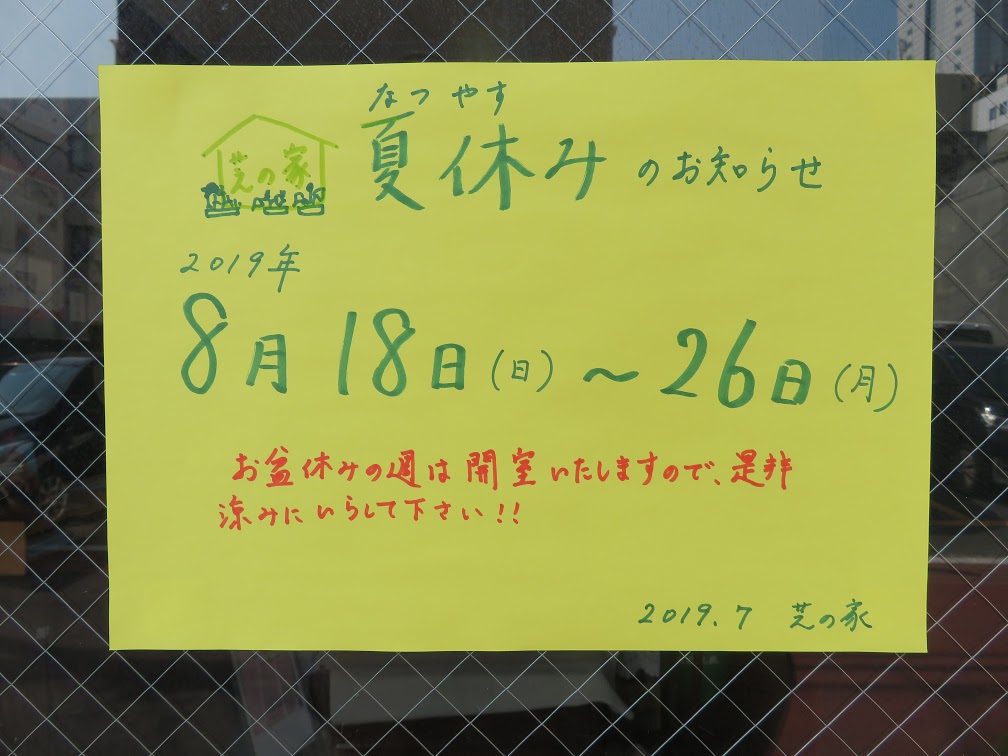 なつ やす
芝の家
夏休みのお知らせ
2019年
8月18日(日)～26日(月)
お盆休みの週は開室いたしますので、是非
涼みにいらして下さい!!
2019.7 芝の家